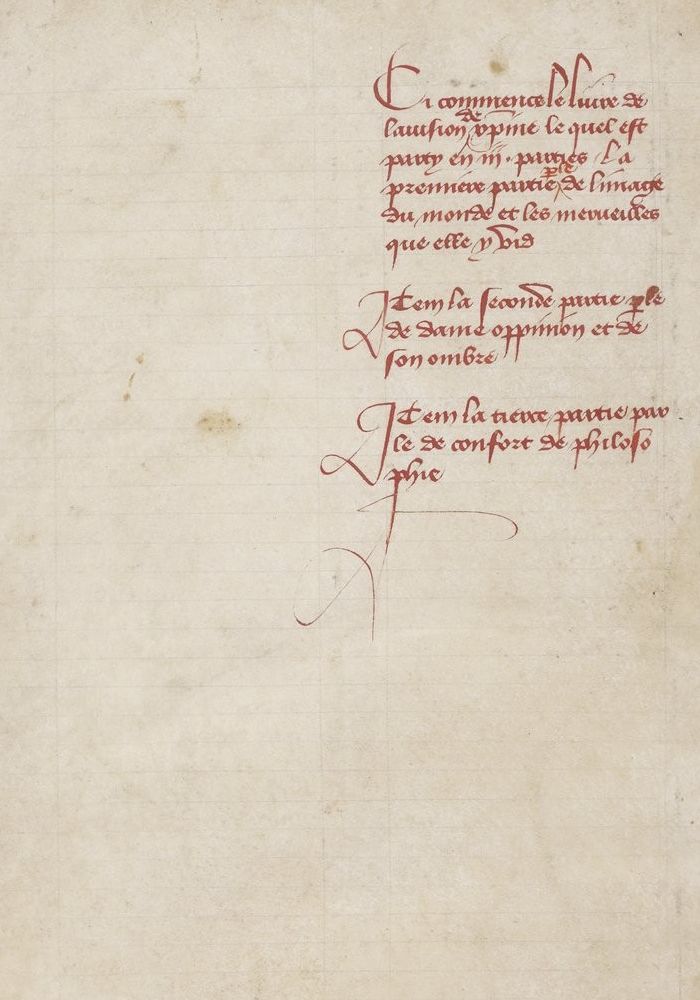 Ci commence le liure de
lauision de xpine le quel est
party en iij · parties la
premiere partie ple de limage
du monde et les merueilles
que elle y vid
Item la seconde partie ple
de dame oppinion et de
son ombre
Item la tierce partie par
le de confort de philoso
phie